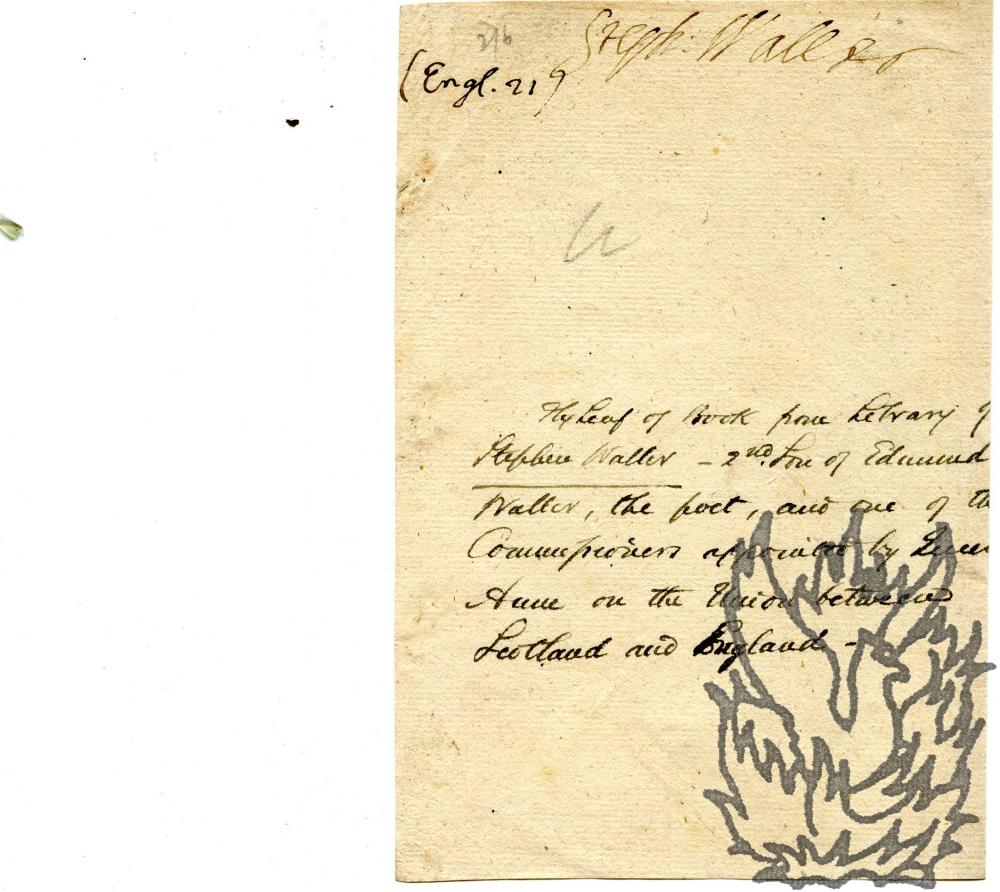 216
Steph: Waller
(Engl. 21)
Fly Leaf of Book from Library of
Stephen Waller – 2nd. Son of Edmund
Waller, the poet, and one of the
Commissioners appointed by Queen
Anne on the Union between
Scotland and England –